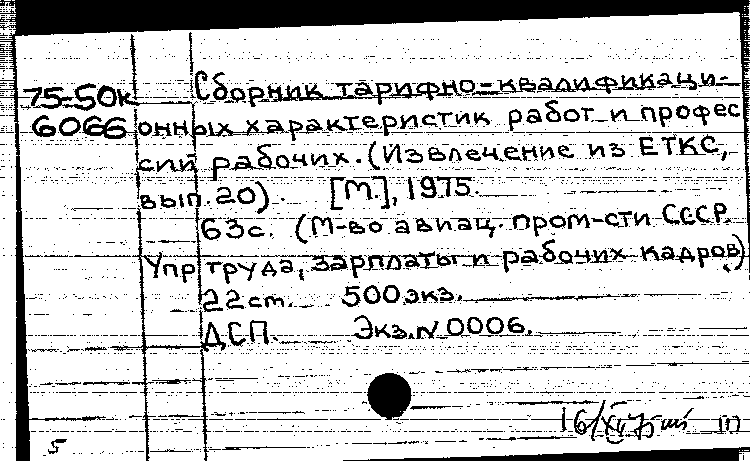 Сборник тарифно-квалификаци-
75-50к
6066 онных характеристик работ и профес
сий рабочих. (Извлечение из ЕТКС,
вып. 20). [М.], 1975.
63с. (М-во авиац. пром-сти СССР.
Упр труда, зарплаты и рабочих кадров)
22см. 500экз.
ДСП. Экз.N 0006.
16/XII 75
5